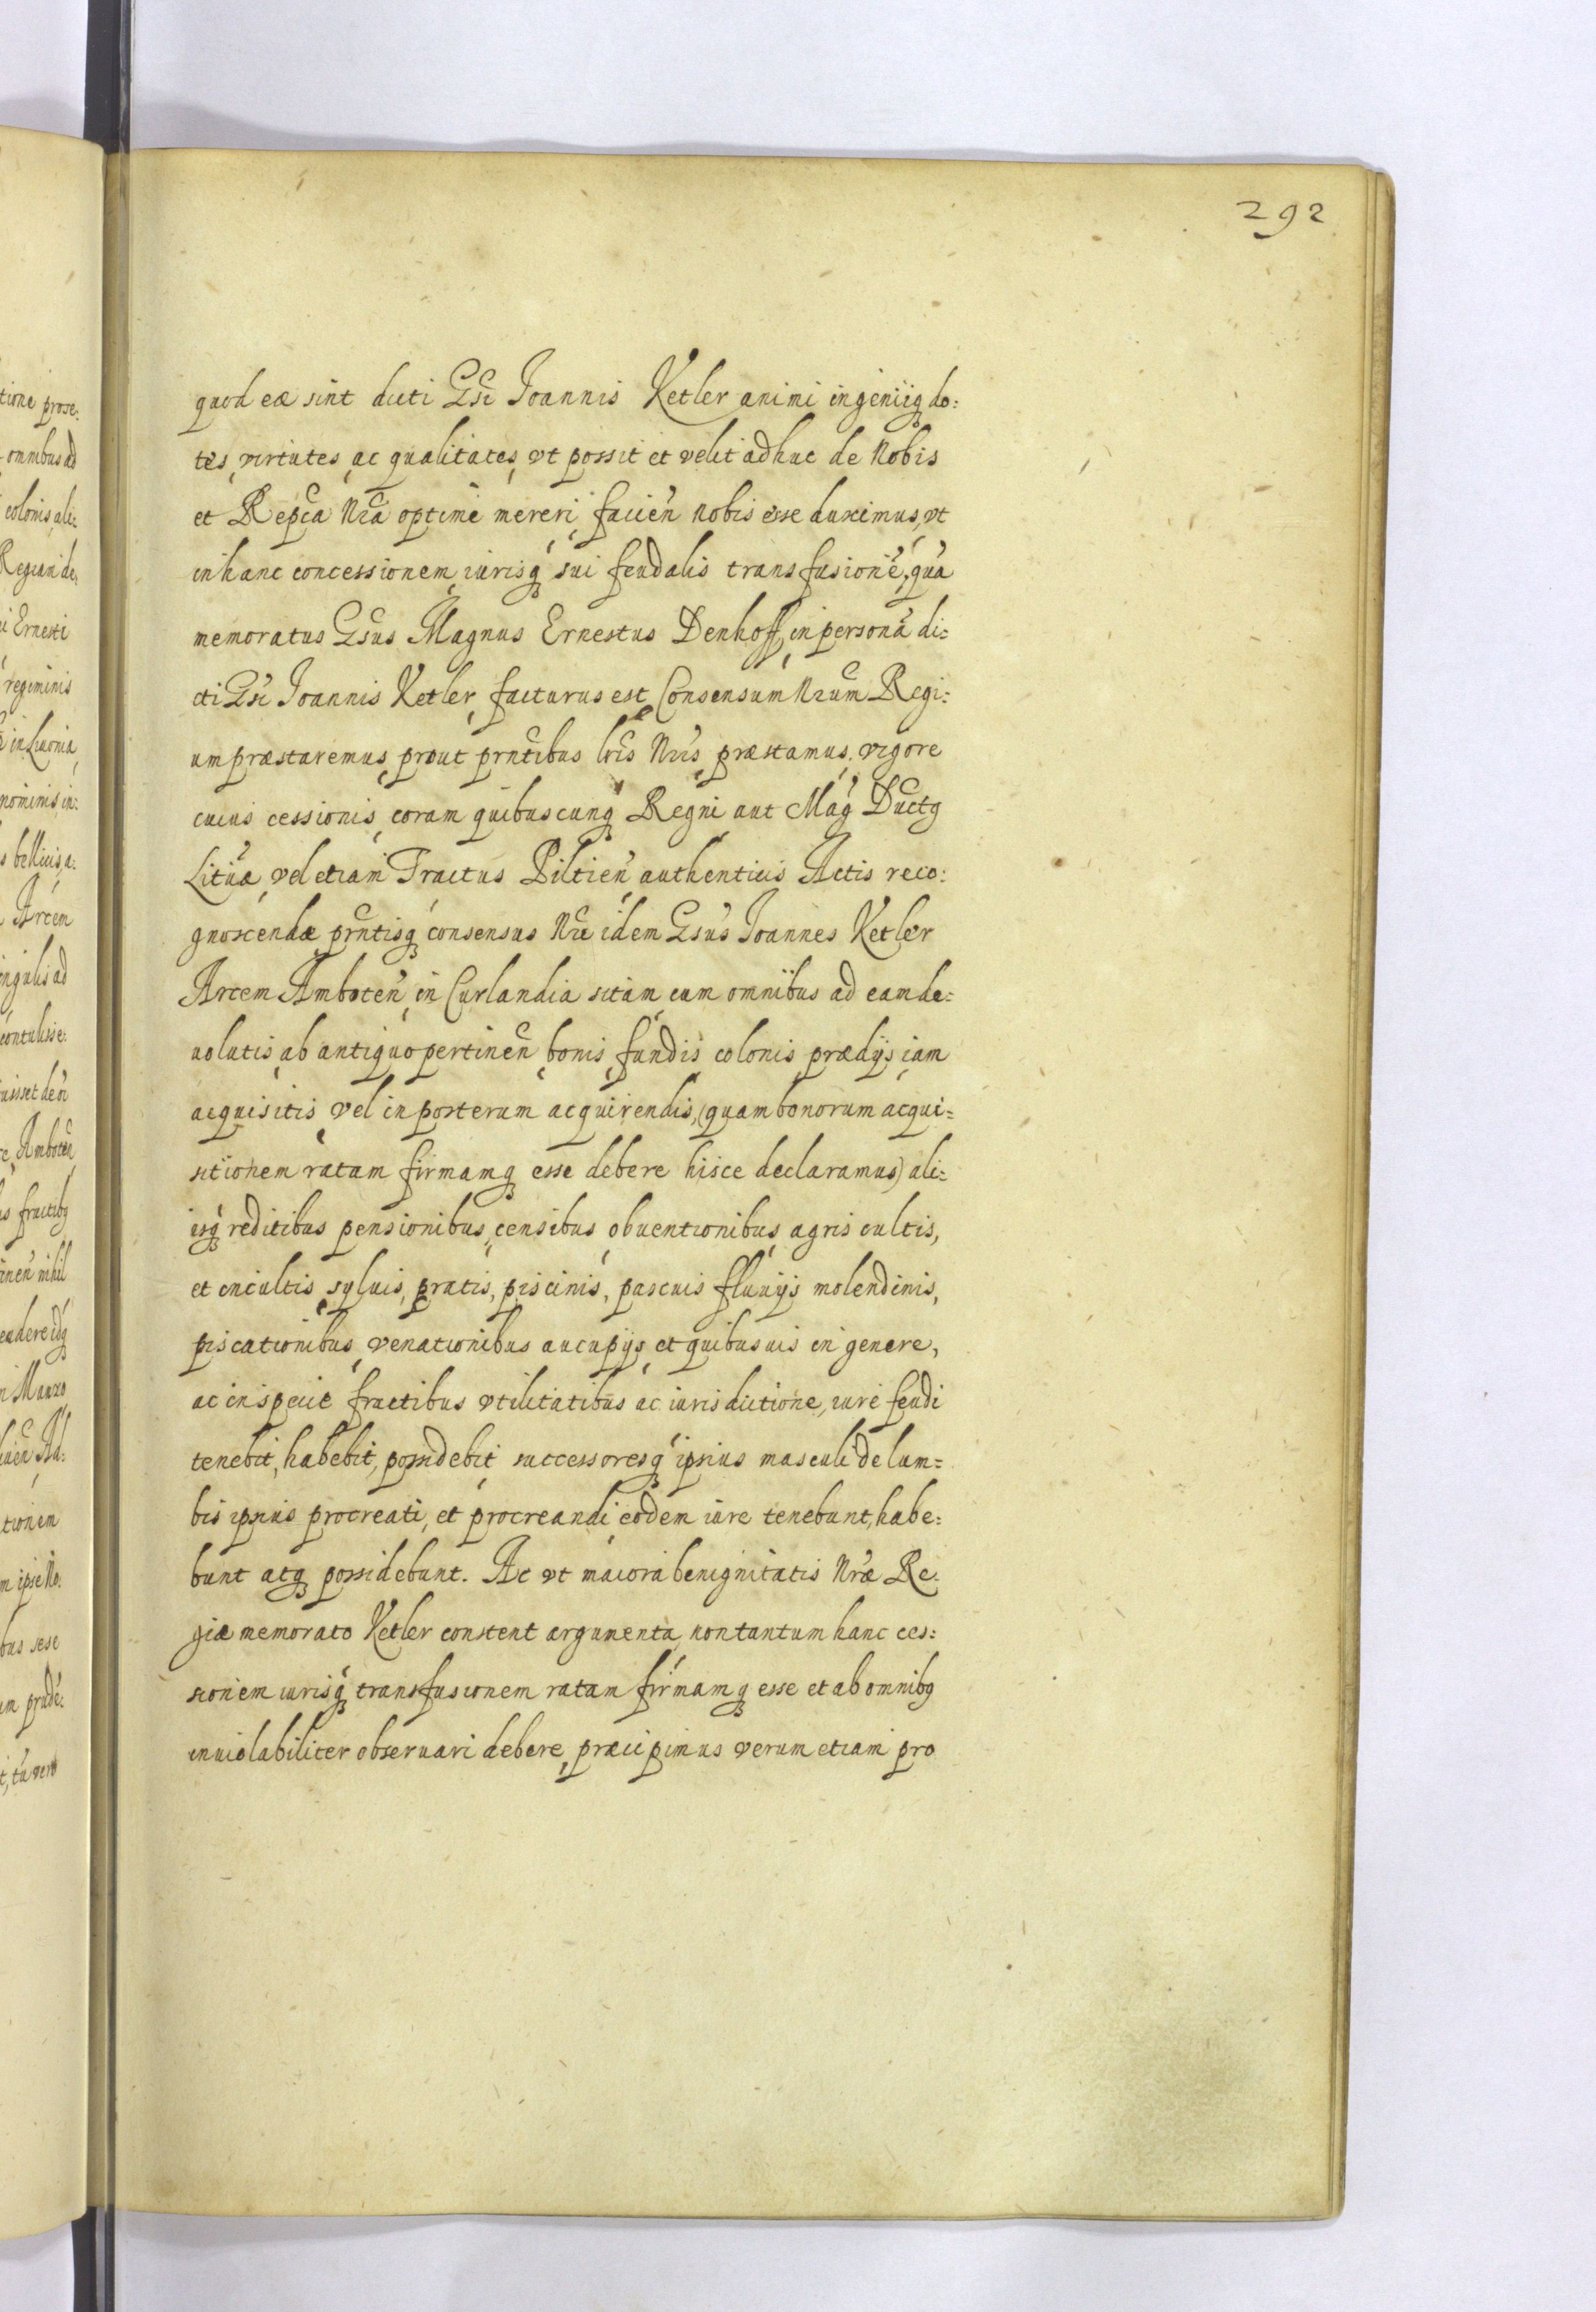 292
quod eæ sint dicti Gsi Joannis Ketler animi ingeniiq do:
tes, virtutes, ac qualitates, vt possit et velit adhuc de Nobis
et Repca Nra optime mereri, facien nobis esse duximus, vt
in hanc concessionem, iurisq sui feudalis transfusione, qua
memoratus Gsus Magnus Ernestus Denhoff, in persona di:
cti Gsi Joannis Ketler, facturus est, Consensum Nrum Regi:
um præstaremus, prout prntibus lris Nris, præstamus, vigore
cuius cessionis, coram quibuscunq Regni aut Mag Ductq
Lituæ, vel etiam Tractus Piltien authenticis Actis reco:
gnoscendæ prntisq consensus Nri idem Gsus Joannes Ketler
Arcem Amboten, in Curlandia sitam, cum omnibus ad eam de:
uolutis, ab antiquo pertinen, bonis, fundis, colonis, prædijs, iam
acquisitis, vel in posterum acquirendis, (quam bonorum acqui=
sitionem ratam firmamq esse debere hisce declaramus) ali:
isq reditibus pensionibus, censibus, obuentionibus, agris cultis,
et incultis, syluis, pratis, piscinis, pascuis fluuijs molendinis,
piscationibus, venationibus aucupijs, et quibusuis in genere,
ac in specie fructibus vtilitatibus ac iurisdictione, iure feudi
tenebit, habebit, possidebit, successoresq ipsius masculi de lum=
bis ipsius procreati, et procreandi, eodem iure tenebunt, habe:
bunt atq possidebunt. Ac vt maiora benignitatis Nræ Re:
giæ memorato Ketler constent argumenta, non tantum hanc ces:
sionem iurisq transfusionem ratam firmamq esse et ab omnibq
inuiolabiliter obseruari debere, præcipimus verum etiam pro